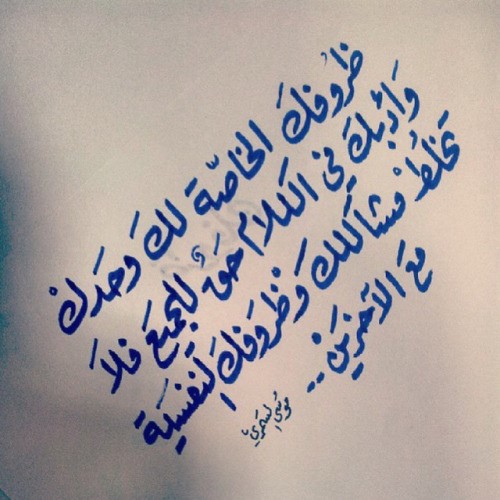 ظروفكَ الخاصّة لكَ وحدكْ
وَأدبكَ في الكلام حقٌ للجميع فلاَ
تخلطْ مشاكلكَ وَظروفكَ النفسية
معَ الآخرينْ ..